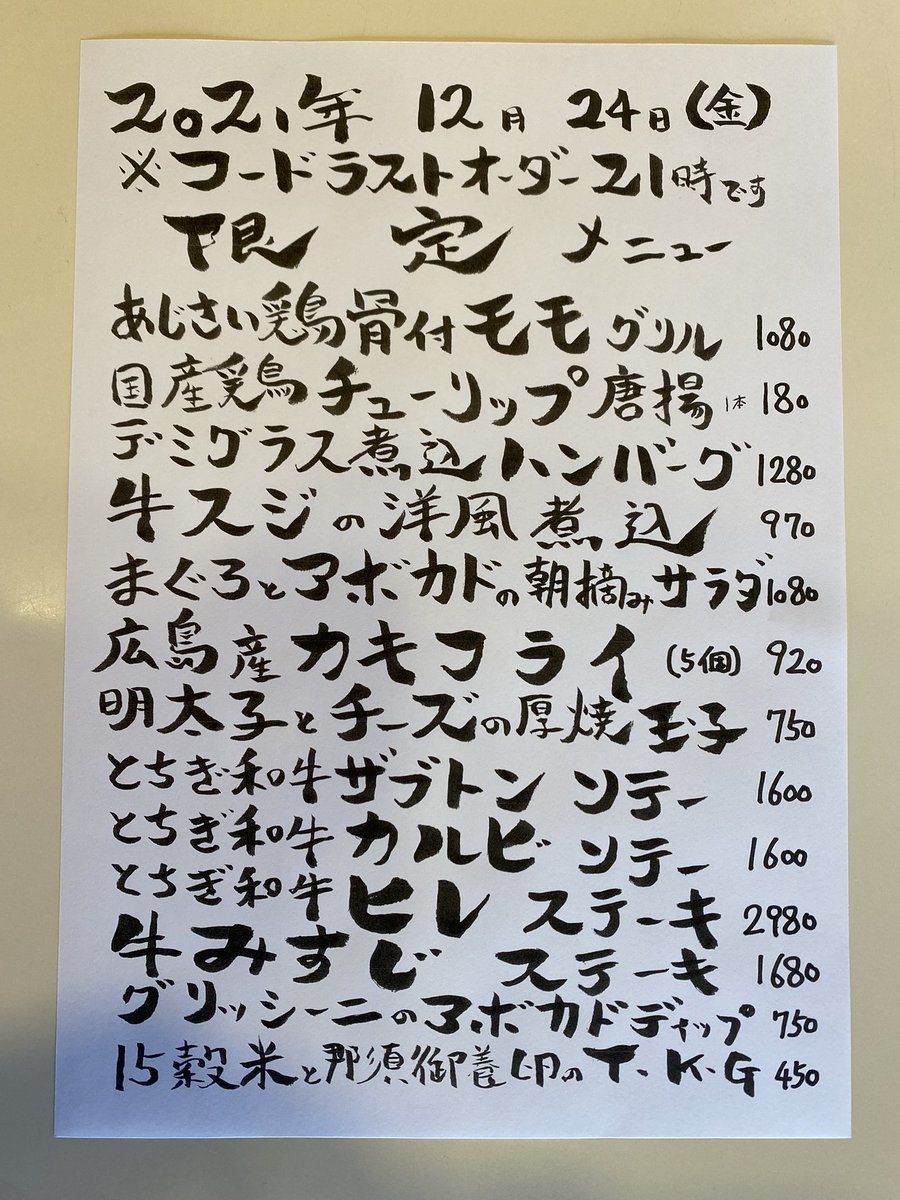 2021年 12月 24日(金)
※フードラストオーダー21時です
限定メニュー
あじさい鶏骨付モモグリル 1080
国産鶏チューリップ唐揚 1本 180
デミグラス煮込ハンバーグ 1280
牛スジの洋風煮込 970
まぐろとアボカドの朝摘みサラダ 1080
広島産カキフライ (5個) 920
明太子とチーズの厚焼玉子 750
とちぎ和牛ザブトンソテー 1600
とちぎ和牛カルビソテー 1600
とちぎ和牛ヒレステーキ 2980
牛みすじステーキ 1680
グリッシーニのアボカドディップ 750
15穀米と那須御養卵のT.K.G 450